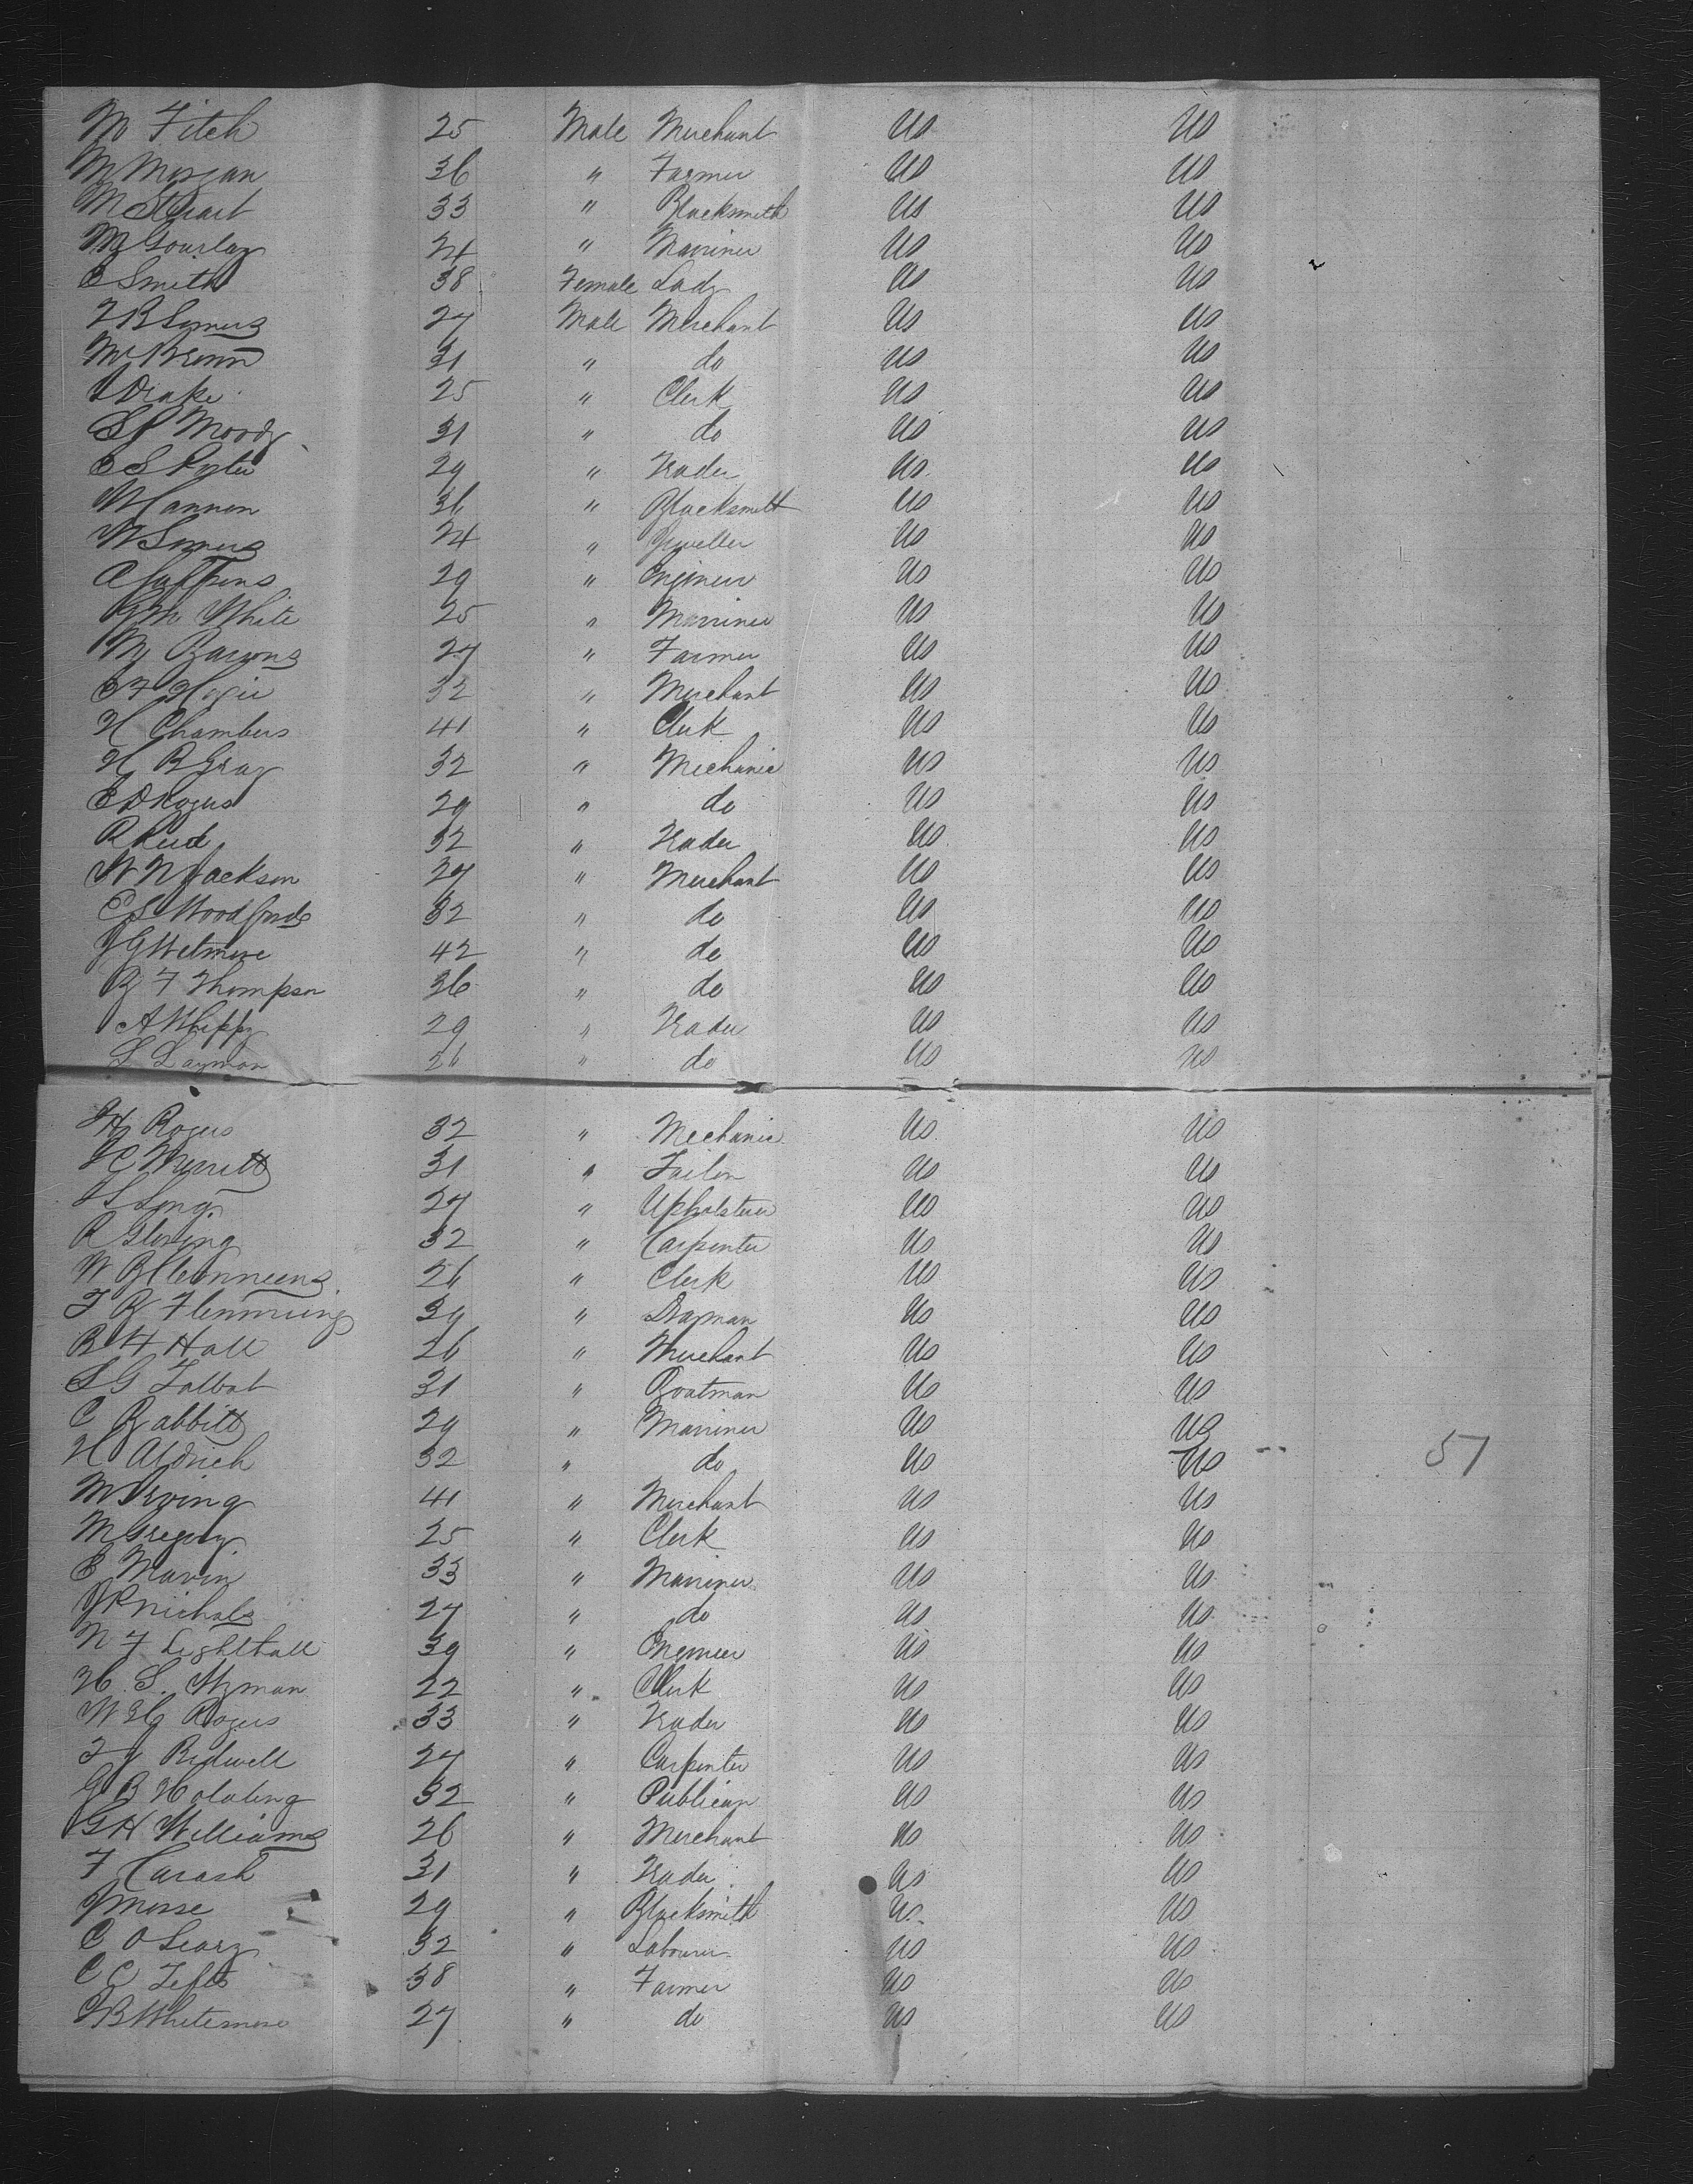 M Fitch 25 Male Merchant US US
M Morgan 36 " Farmer US US
M Stuart 33 " Blacksmith US US
M Gourlay 24 " Marriner US US
E Smith 38 Female Lady US US
Somers 27 Male Merchant US US
M Brown 31 " do US US
Drake 25 " Clerk US US
Moody 31 " do US US
E S 29 " Trader US US
W Cannon 36 " Blacksmith US US
W Somers 24 " Jeweller US US
29 " Engineer US US
G M White 25 " Marriner US US
M Barrons 27 " Farmer US US
E F 32 " Merchant US US
H Chambers 41 " Clerk US US
H B Gray 32 " Mechanic US US
E D Rogers 29 " do US US
R Reid 32 " Trader US US
W N Jackson 27 " Merchant US US
E S Woodfords 32 " do US US
J G Wetmore 42 " do US US
B F Thompson 36 " do US US
A Whippy 29 " Trader US US
S Layman 26 " do US US
H Rogers 32 " Mechanic US US
Merritt 31 " Tailor US US
Long 27 " Upholsterer US US
R 32 " Carpenter US US
W B Clemmens 26 " Clerk US US
T B Flemming 39 " Drayman US US
B H Hall 26 " Merchant US US
S G Talbot 31 " Boatman US US
C Babbitt 29 " Marriner US US
H Aldrich 32 " do US US 57
M Irving 41 " Merchant US US
M Gregory 25 " Clerk US US
E Mavin 33 " Marriner US US
J R Nichols 27 " do US US
N F Lighthall 39 " Engineer US US
H. S. Wyman 22 " Clerk US US
W H Rogers 33 " Trader US US
Bidwell 27 " Carpenter US US
G B 32 " Publican US US
G H Williams 26 " Merchant US US
F Carash 31 " Trader US US
J Morse 29 " Blacksmith US US
C O Leary 32 " Labourer US US
C C Tefts 38 " Farmer US US
Whitemore 27 " do US US